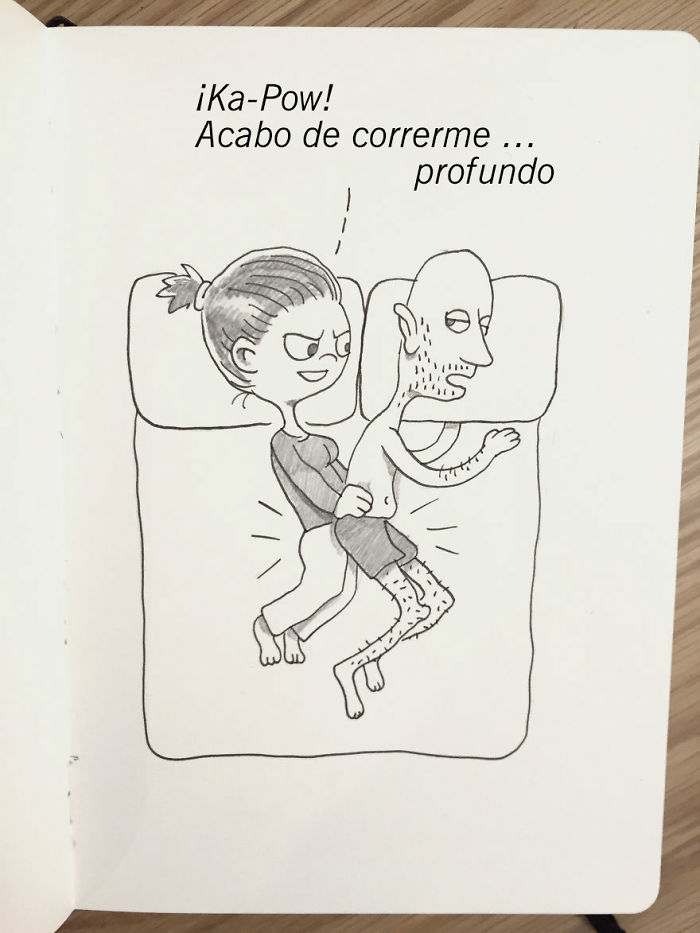 ¡Ka-Pow!
Acabo de correrme ...
profundo